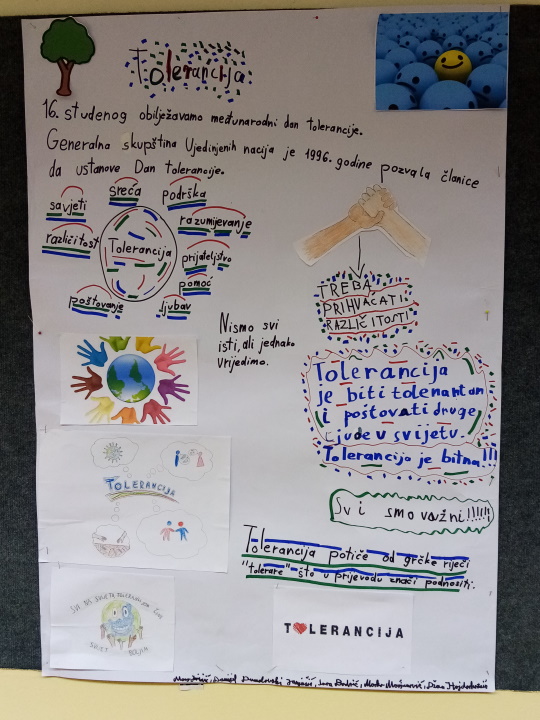 Tolerancija
16. studenog obilježavamo međunarodni dan tolerancije.
Generalna skupština Ujedinjenih nacija je 1996. godine pozvala članice
da ustanove Dan Tolerancije.
sreća
podrška
savjeti
razumijevanje
različitost
Tolerancija
prijateljstvo
pomoć
poštovanje
ljubav
TREBA
PRIHVAĆATI
RAZLIČITOSTI
Nismo svi
isti, ali jednako
vrijedimo.
Tolerancija
je biti tolerantan
i poštovati druge
ljude u svijetu.
Tolerancija je bitna!!!
TOLERANCIJA
Svi smo važni!!!!!!
Tolerancija potiče od grčke riječi
"tolerare" što u prijevodu znači podnositi.
SVIJET BOLJIM
TOLERANCIJA